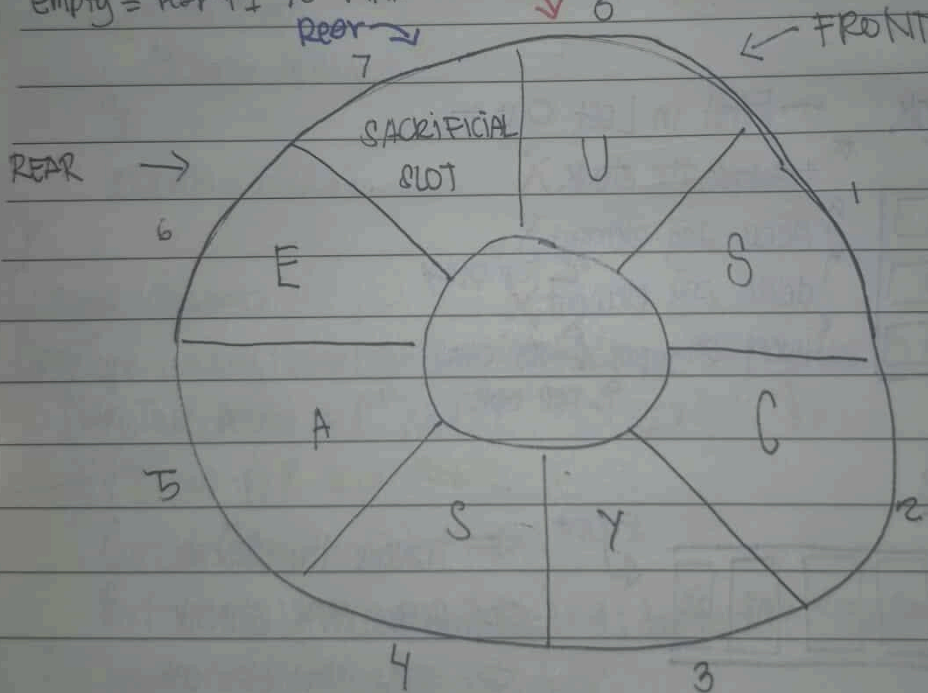 empty =
0
Rear
FRONT
7
SACRIFICIAL
SLOT
U
REAR
1
6
E
S
A
C
5
S
Y
2
4
3